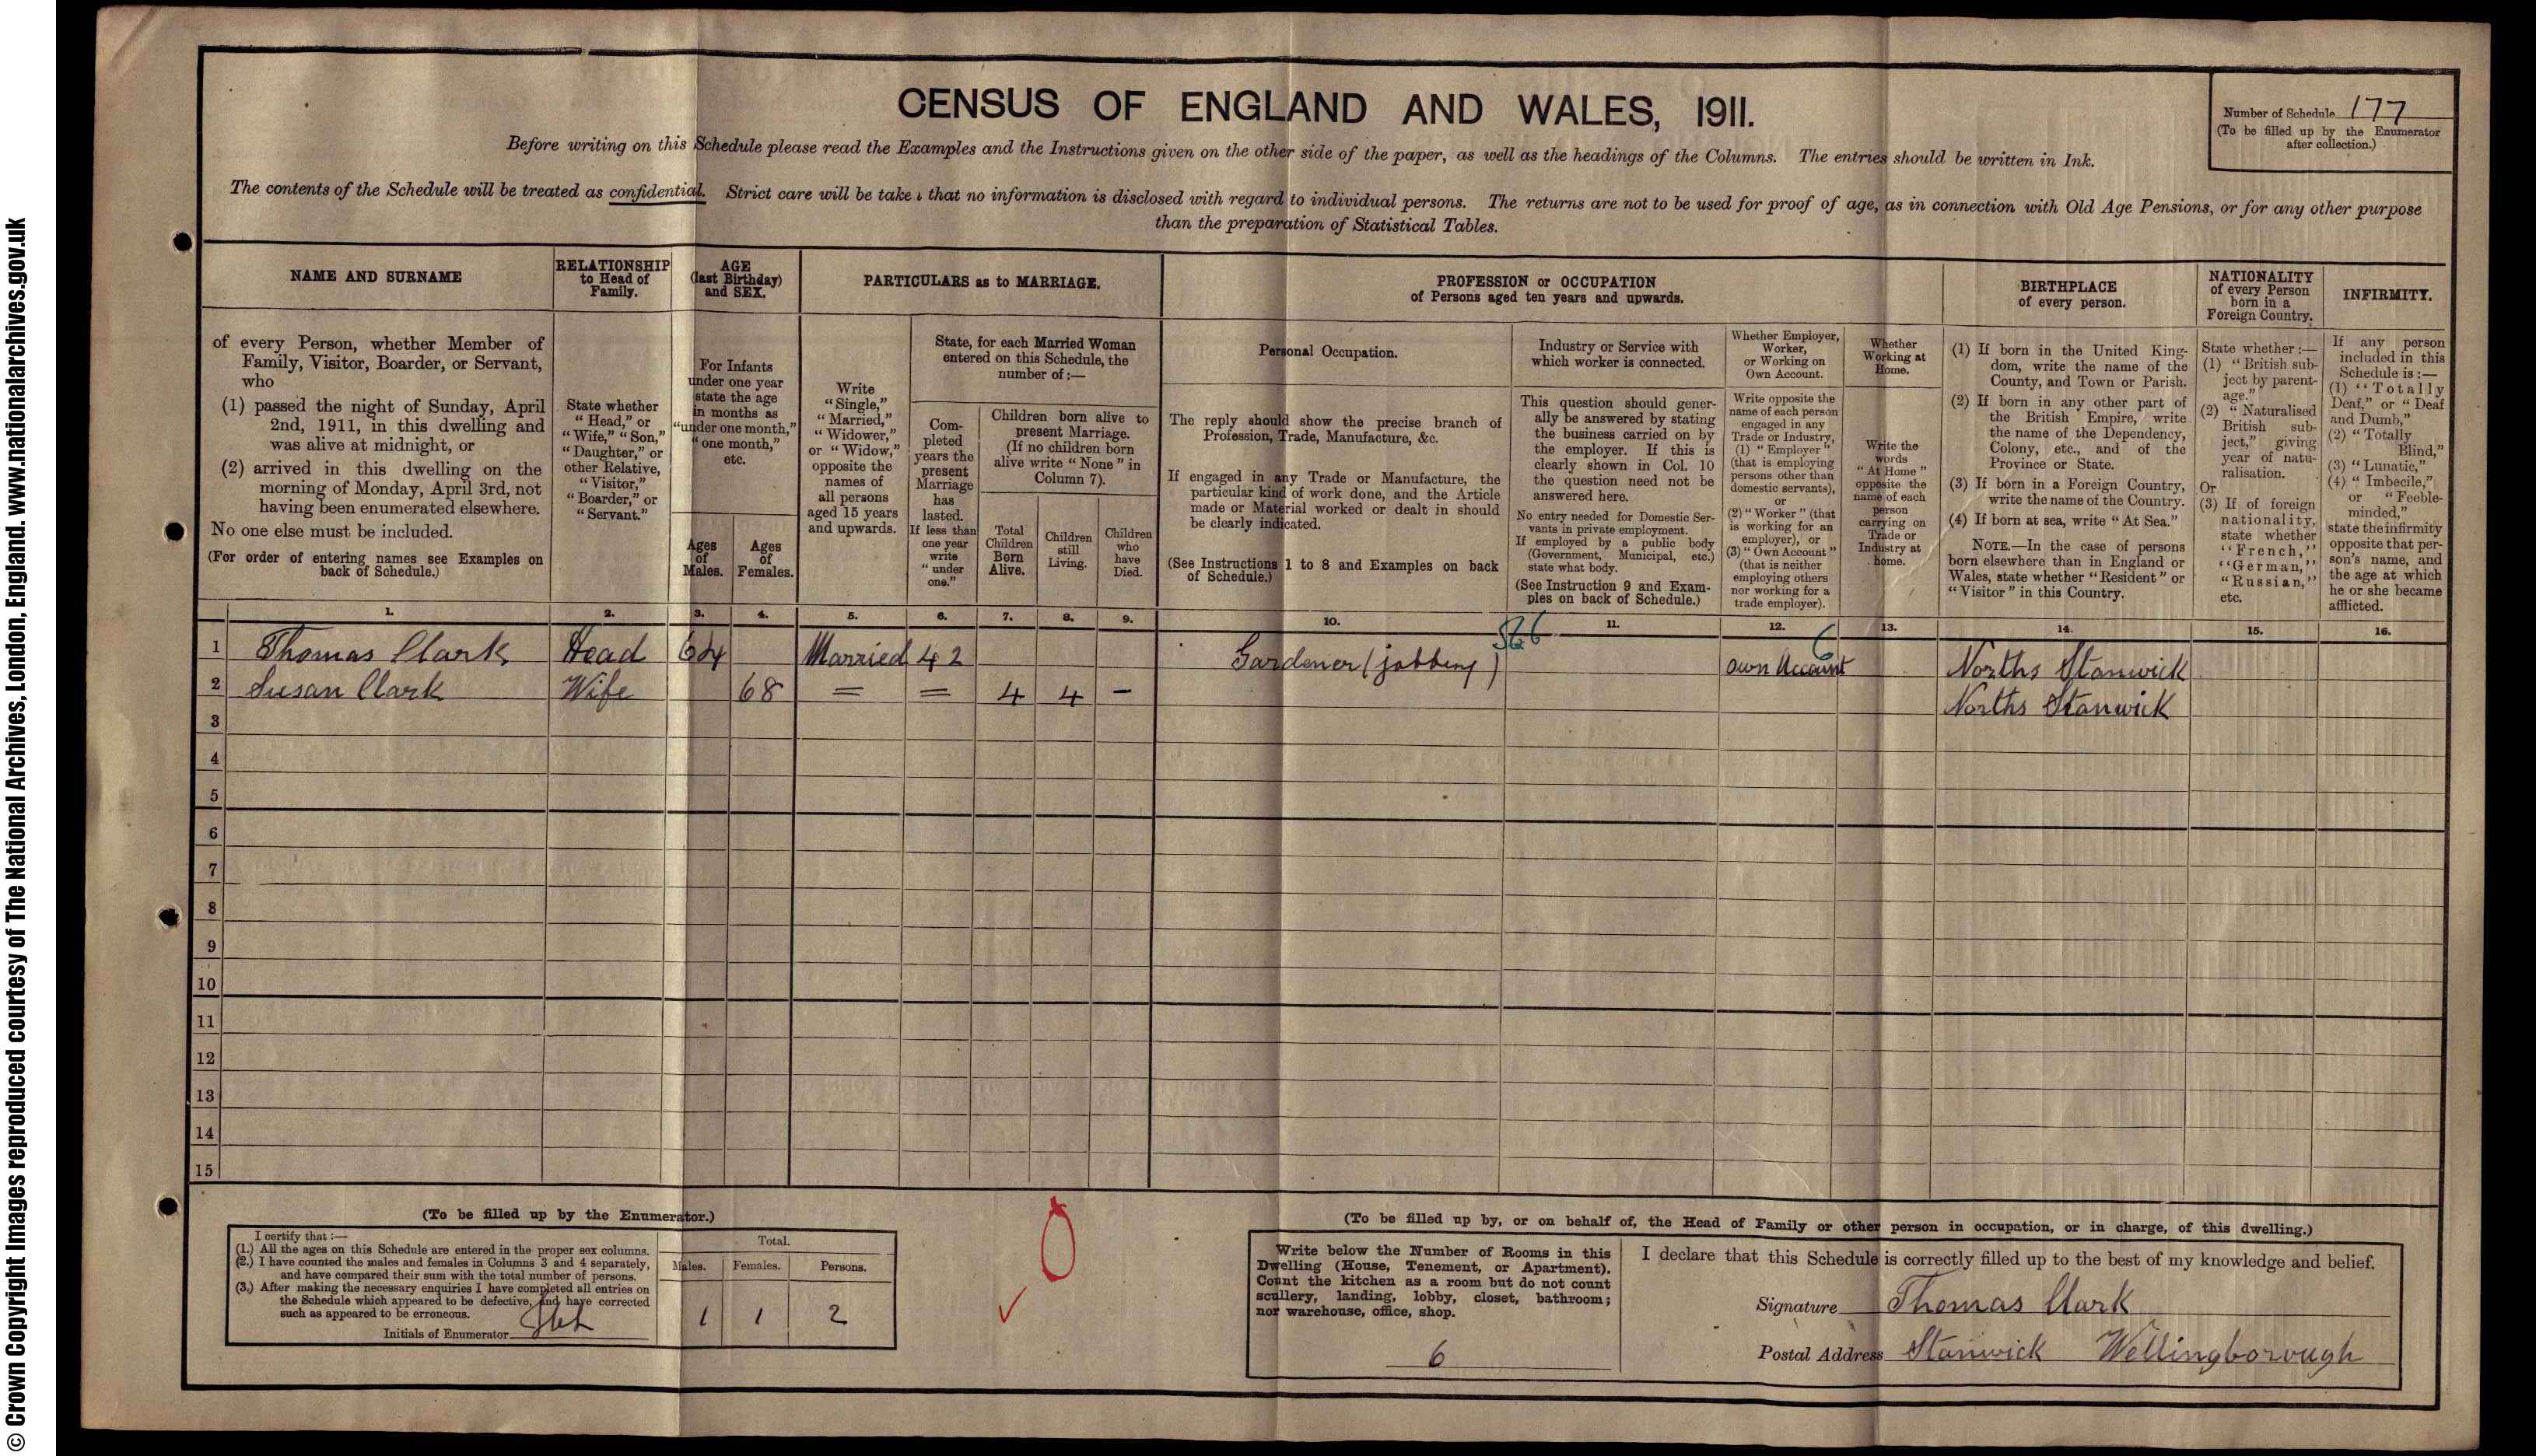 © Crown Copyright Images reproduced courtesy of The National Archives, London, England. www.nationalarchives.gov.uk
CENSUS OF ENGLAND AND WALES, 1911.
Number of Schedule 177
(To be filled up by the Enumerator
after collection.)
Before writing on this Schedule please read the Examples and the Instructions given on the other side of the paper, as well as the headings of the Columns. The entries should be written in Ink.
The contents of the Schedule will be treated as confidential. Strict care will be take that no information is disclosed with regard to individual persons. The returns are not to be used for proof of age, as in connection with Old Age Pensions, or for any other purpose
than the preparation of Statistical Tables.
NAME AND SURNAME
of every Person, whether Member of
Family, Visitor, Boarder, or Servant,
who
(1) passed the night of Sunday, April
2nd, 1911, in this dwelling and
was alive at midnight, or
(2) arrived in this dwelling on the
morning of Monday, April 3rd, not
having been enumerated elsewhere.
No one else must be included.
(For order of entering names see Examples on
back of Schedule.)
1.
RELATIONSHIP
to Head of
Family.
State whether
"Head," or
"Wife," "Son,"
"Daughter," or
other Relative,
"Visitor,"
"Boarder," or
"Servant."
2.
AGE
(last Birthday)
and SEX.
For Infants
under one year
state the age
in months as
"under one month,"
"one month,"
etc.
Ages
of
Males.
3.
Ages
of
Females.
4.
PARTICULARS as to MARRIAGE.
Write
"Single,"
"Married,"
"Widower,"
or "Widow,"
opposite the
names of
all persons
aged 15 years
and upwards.
5.
State, for each Married Woman
entered on this Schedule, the
number of:—
Com-
pleted
years the
present
Marriage
has
lasted.
If less than
one year
write
"under
one."
6.
Children born alive to
present Marriage.
(If no children born
alive write "None" in
Column 7).
Total
Children
Born
Alive.
7.
Children
still
Living.
8.
Children
who
have
Died.
9.
PROFESSION or OCCUPATION
of Persons aged ten years and upwards.
Personal Occupation.
The reply should show the precise branch of
Profession, Trade, Manufacture, &c.
If engaged in any Trade or Manufacture, the
particular kind of work done, and the Article
made or Material worked or dealt in should
be clearly indicated.
(See Instructions 1 to 8 and Examples on back
of Schedule.)
10.
Industry or Service with
which worker is connected.
This question should gener-
ally be answered by stating
the business carried on by
the employer. If this is
clearly shown in Col. 10
the question need not be
answered here.
No entry needed for Domestic Ser-
vants in private employment.
If employed by a public body
(Government, Municipal, etc.)
state what body.
(See Instruction 9 and Exam-
ples on back of Schedule.)
11.
Whether Employer,
Worker,
or Working on
Own Account.
Write opposite the
name of each person
engaged in any
Trade or Industry,
(1) "Employer"
(that is employing
persons other than
domestic servants),
or
(2) "Worker" (that
is working for an
employer), or
(3) "Own Account"
(that is neither
employing others
nor working for a
trade employer).
12.
Whether
Working at
Home.
Write the
words
"At Home"
opposite the
name of each
person
carrying on
Trade or
Industry at
home.
13.
BIRTHPLACE
of every person.
(1) If born in the United King-
dom, write the name of the
County, and Town or Parish.
(2) If born in any other part of
the British Empire, write
the name of the Dependency,
Colony, etc., and of the
Province or State.
(3) If born in a Foreign Country,
write the name of the Country.
(4) If born at sea, write "At Sea."
NOTE.—In the case of persons
born elsewhere than in England or
Wales, state whether "Resident" or
"Visitor" in this Country.
14.
NATIONALITY
of every Person
born in a
Foreign Country.
State whether:—
(1) "British sub-
ject by parent-
age."
(2) "Naturalised
British sub-
ject," giving
year of natu-
ralisation.
Or
(3) If of foreign
nationality,
state whether
"French,"
"German,"
"Russian,"
etc.
15.
INFIRMITY.
If any person
included in this
Schedule is:—
(1) "Totally
Deaf," or "Deaf
and Dumb,"
(2) "Totally
Blind,"
(3) "Lunatic,"
(4) "Imbecile,"
or "Feeble-
minded,"
state the infirmity
opposite that per-
son's name, and
the age at which
he or she became
afflicted.
16.
1 Thomas Clark Head 64 Married 42 Gardener (jobbing) Own Account 6 Norths Stanwick
2 Susan Clark Wife 68 = = 4 4 - Norths Stanwick
3
4
5
6
7
8
9
10
11
12
13
14
15
(To be filled up by the Enumerator.)
I certify that:—
(1.) All the ages on this Schedule are entered in the proper sex columns.
(2.) I have counted the males and females in Columns 3 and 4 separately,
and have compared their sum with the total number of persons.
(3.) After making the necessary enquiries I have completed all entries on
the Schedule which appeared to be defective, and have corrected
such as appeared to be erroneous.
Initials of Enumerator
Total.
Males. Females. Persons.
1 1 2
(To be filled up by, or on behalf of, the Head of Family or other person in occupation, or in charge, of this dwelling.)
Write below the Number of Rooms in this
Dwelling (House, Tenement, or Apartment).
Count the kitchen as a room but do not count
scullery, landing, lobby, closet, bathroom;
nor warehouse, office, shop.
6
I declare that this Schedule is correctly filled up to the best of my knowledge and belief.
Signature Thomas Clark
Postal Address Stanwick Wellingborough